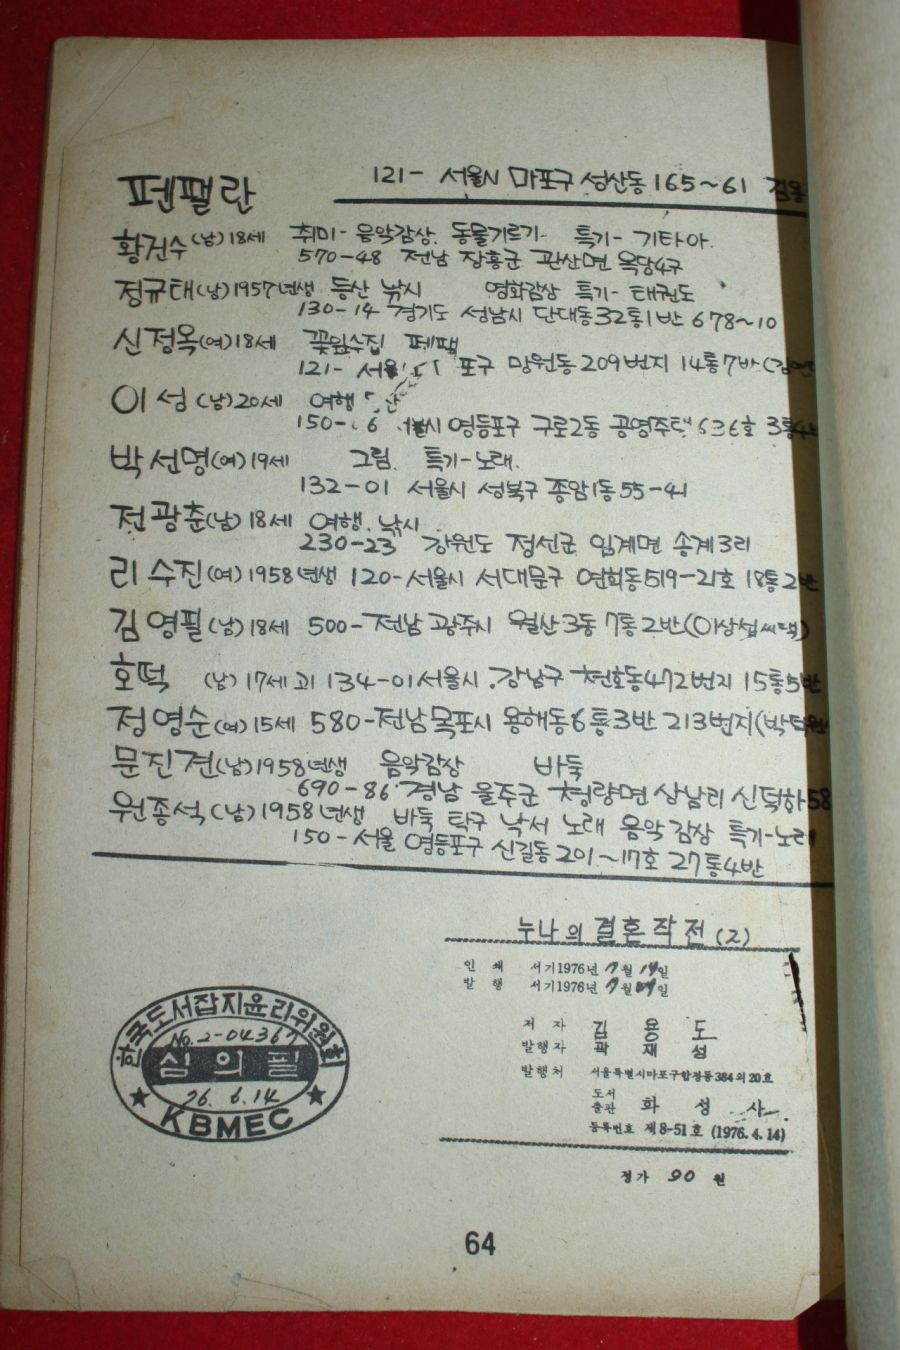 펜팔란
121- 서울시 마포구 성산동 165~61 김용
황건수(남)18세 취미- 음악감상. 동물기르기- 특기- 기타아.
570-48 전남 장흥군 관산면 옥당4구
정규태(남)1957년생 등산 낚시 영화감상 특기- 태권도
130-14 경기도 성남시 단대동32통1반 678~10
신정옥(여)18세 꽃잎수집 펜팰
121- 포구 망원동 209번지 14통7반(
이성(남)20세 여행
150- 영등포구 구로2동 공영주택 636호
박선명(여)19세 그림. 특기-노래.
132-01 서울시 성북구 종암1동 55-41
전광춘(남)18세 여행. 낚시
230-23 강원도 정선군 임계면 송계3리
리수진(여)1958년생 120-서울시 서대문구 연희동519-21호 18통2반
김영필(남)18세 500-전남 광주시 월산3동 7통2반(이상섭씨댁)
호떡 (남)17세 134-01서울시. 강남구 천호동472번지 15통5반
정영순(여)15세 580-전남목포시 용해동6통3반 213번지(박
문진견(남)1958년생 음악감상 바둑
690-86 경남 울주군 청량면 상남리 신덕하58
원종석(남)1958년생 바둑 탁구 낙서 노래 음악감상 특기-노래
150-서울 영등포구 신길동201~17호 27통4반
누나의 결혼작전 (2)
인쇄 서기1976년 7월 14일
발행 서기1976년 7월 일
저자 김용도
발행자 곽재성
발행처 서울특별시마포구합정동384의20호
도서출판 화성사
등록번호 제8-51호 (1976.4.14)
정가 90원
한국도서잡지윤리위원회
No.2-04367
심의필
76. 6.14
★ KBMEC ★
64